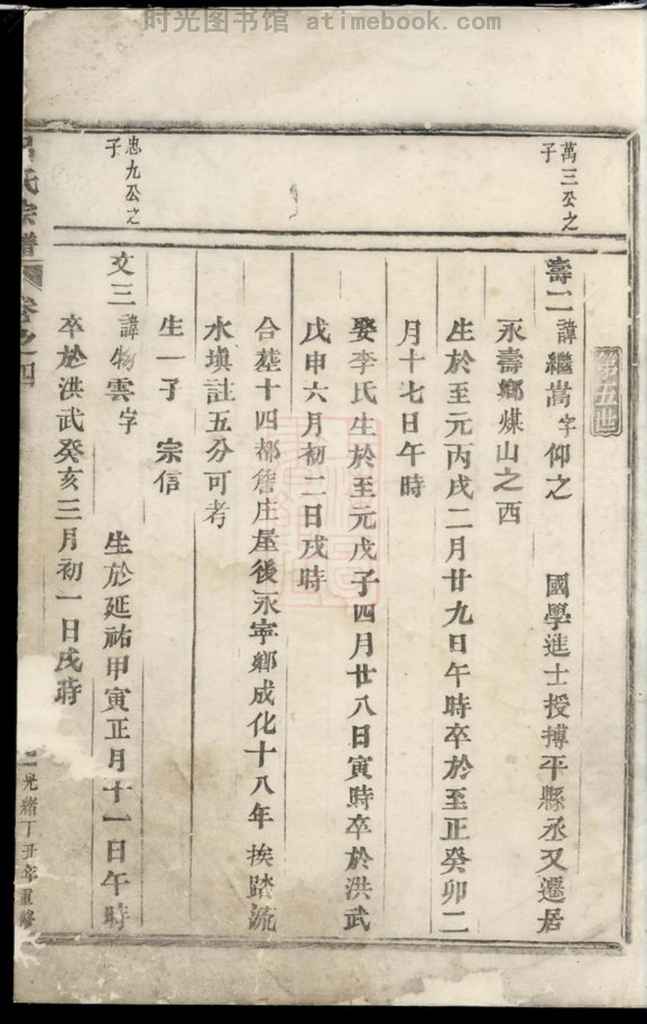 时光图书馆 atimebook.com
第五世
萬三公之
子
壽二 諱繼嵩 字仰之 國學進士授摶平縣丞又遷居
永壽鄉煤山之西
生於至元丙戌二月廿九日午時卒於至正癸卯二
月十七日午時
娶李氏生於至元戊子四月廿八日寅時卒於洪武
戊申六月初二日戌時
合塟十四都詹庄屋後永寧鄉成化十八年挨踏流
水填註五分可考
生一子 宗信
忠九公之
子
文三 諱 雲字 生於延祐甲寅正月十一日午時
卒於洪武癸亥三月初一日戌時
氏宗譜 卷之四
二 光緒丁丑年重修